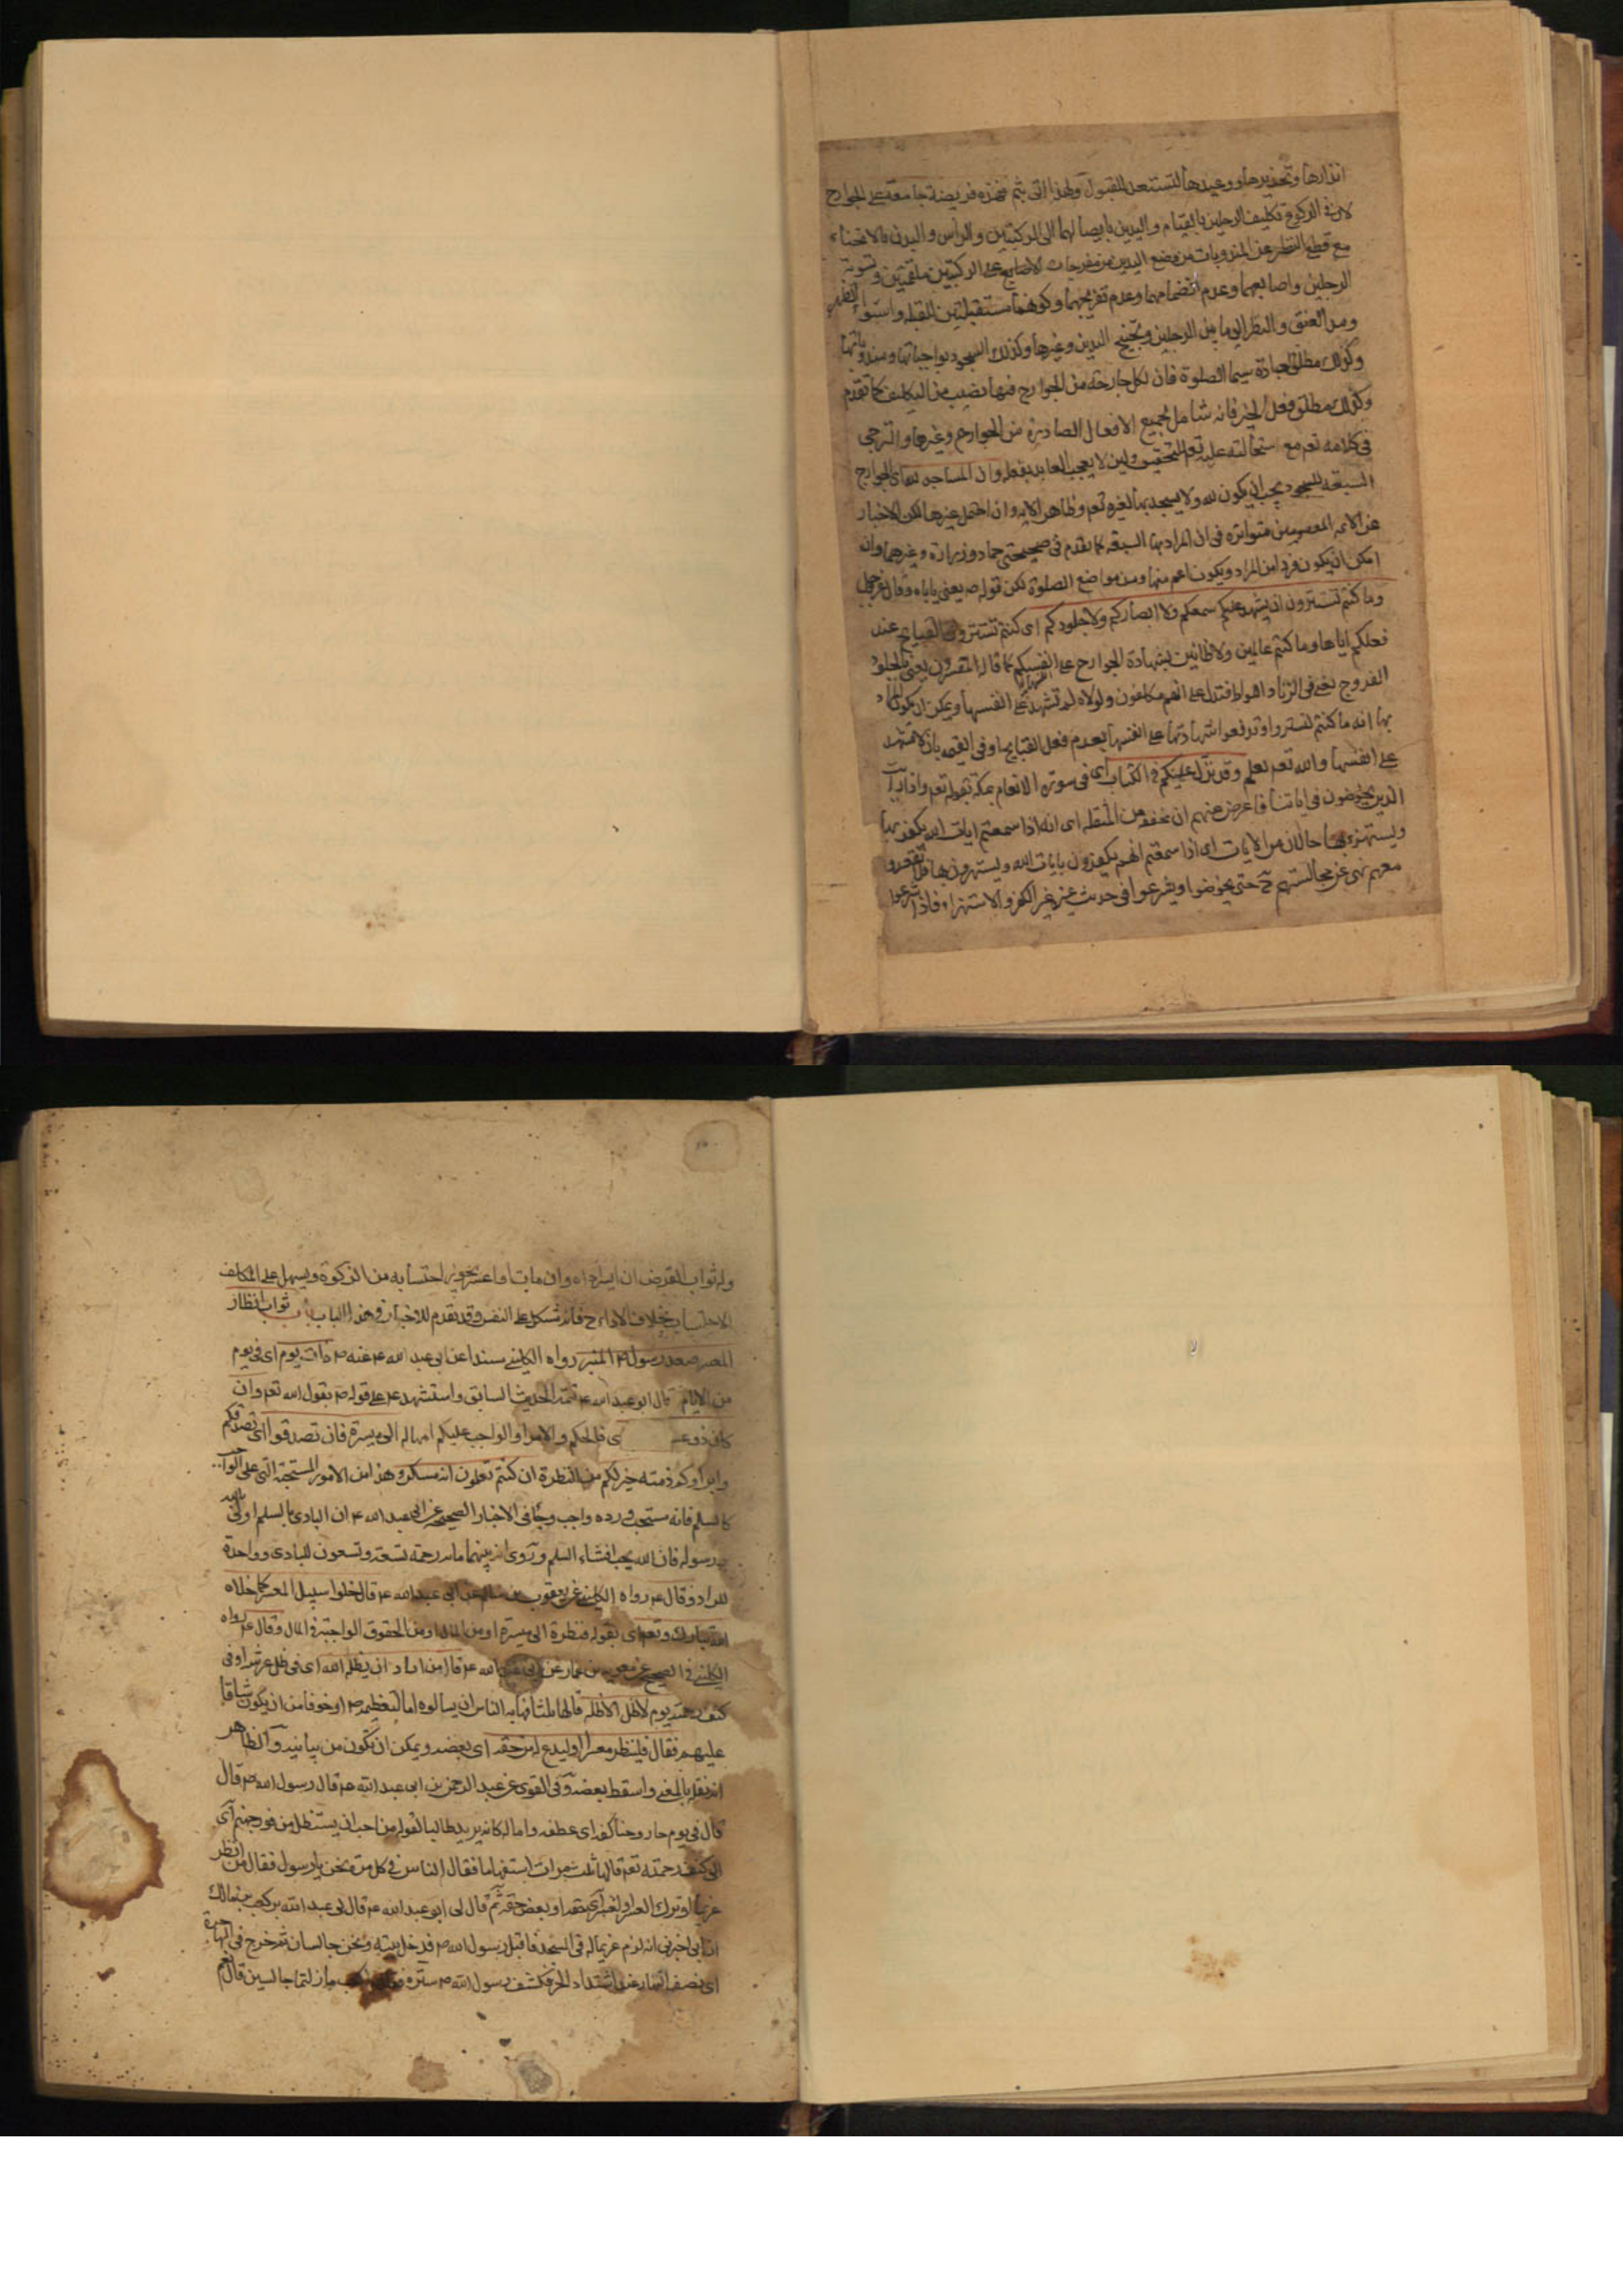 انذارها وتحذيرها ووعيدها لتستعد للقبول ولهذا اتى بثم فهذه فريضة جامعة على الجوارح
لان في الركوع تكليف الرجلين بالقيام واليدين بايصالهما الى الركبتين والراس والبدن بالانحناء
مع قطع النظر عن المندوبات من وضع اليدين مفرجات الاصابع على الركبتين ملقمتين وتسوية
الرجلين واصابعهما وعدم انضمامهما وعدم تفريجهما وكونهما مستقبلتين للقبلة واستواء الظهر
ومد العنق والنظر الى ما بين الرجلين وتجنيح اليدين وغيرها وكذلك السجود بواجباتها ومندوباتها
وكذلك مطلق العبادة سيما الصلوة فان لكل جارحة من الجوارح فيها نصيب من التكليف كما تقدم
وكذلك مطلق فعل الخير فانه شامل لجميع الافعال الصادرة من الجوارح وغيرها والترجي
في كلامه تعم مع استحالته عليه تعم للتحقيق ولئن لا يعجب العابد بفعله وان المساجد لله اى الجوارح
السبعة للسجود يجب ان يكون لله ولا يسجد بها لغيره تعم وظاهر الاية وان احتمل غيرها لكن الاخبار
عن الائمة المعصومين متواترة في ان المراد بها السبعة كما تقدم في صحيحتي حماد وزرارة وغيرهما وان
امكن ان يكون فردا من المراد ويكون اعم منها ومن مواضع الصلوة لكن قوله ص يعنى ياباه وقال عز وجل
وما كنتم تستترون ان يشهد عليكم سمعكم ولا ابصاركم ولا جلودكم اى كنتم تستترون القبايح عند
فعلكم اياها وما كنتم عالمين ولا ظانين بشهادة الجوارح على انفسكم كما قاله المفسرون يعنى بالجلود
الفروج يعنى في الزنا واللواط فتدل على انهم مكلفون ولولاه لم تشهد على انفسها ويمكن ان يكون المراد
بها انه ما كنتم لتستروا وتدفعوا شهادتها على انفسها بعدم فعل القبايح وفي القيمة بان لا تشهد
على انفسها والله تعم يعلم وقد نزل عليكم في الكتاب اى في سورة الانعام بمكة بقوله تعم واذا رايت
الذين يخوضون في اياتنا فاعرض عنهم ان مخففة من المثقلة اى انه اذا سمعتم ايات الله يكفر بها
ويستهزء بها حالان من الايات اى اذا سمعتم انهم يكفرون بايات الله ويستهزؤن بها فلا تقعدوا
معهم نهى عن مجالستهم ح حتى يخوضوا ويشرعوا في حديث غيره غير الكفر والاستهزاء فاذا شرعوا
وله ثواب القرض ان ايسر اداه وان مات او اعسر يجوز احتسابه من الزكوة ويسهل على المكلف
الاحتساب بخلاف الاداء ح فانه شكل على النفس وقد تقدم للاخبار في هذا الباب باب ثواب انظار
المعسر صعد رسول الله ص المنبر رواه الكليني مسندا عن ابي عبد الله ع عنه ص ذات يوم اى في يوم
من الايام قال ابو عبد الله ع تتمة الحديث السابق واستشهد ع على قوله ص بقول الله تعم وان
كان ذو عسـ ى فالحكم والامر او الواجب عليكم امهاله الى ميسرة فان تصدقوا اى تصدقكم
وابراؤكم ذمته خير لكم من النظرة ان كنتم تعلمون انه معسكر وهذا من الامور المستحبة التي على الواجب
كالسلم فانه مستحب ورده واجب وجاء في الاخبار الصحيحة عن ابي عبد الله ع ان البادى بالسلم اولى بالله
ورسوله فان الله يحب افشاء السلم وروى ان بينهما ماة رحمة تسعة وتسعون للبادى وواحدة
للراد وقال ع رواه الكليني عن يعقوب بن سالم عن ابي عبد الله ع قال خلوا سبيل المعسر كما خلاه
الله تبارك وتعم اى بقوله فنظرة الى ميسرة او من المال او من الحقوق الواجبة في المال وقال ع رواه
الكليني في الصحيح عن معوية بن عمار عن ابي عبد الله ع قال من اراد ان يظله الله اى في ظل عرشه او في
كنف رحمته يوم لا ظل الا ظله قالها ثلثا فهابه الناس ان يسالوه اما لتعظيمه ص او خوفا من ان يكون شاقا
عليهم فقال فلينظر معسرا او ليدع له من حقه اى بعضه ويمكن ان تكون من بيانية والظاهر
انه نقل بالمعنى واسقط بعضه وفي القوى عن عبد الرحمن بن ابي عبد الله ع قال قال رسول الله ص قال
قال في يوم حار وحنا كفه اى عطفه واماله كانه يريد طالبا لقوله من احب ان يستظل من فور جهنم اى
الى كنف رحمته تعم قالها ثلث مرات استفهاما فقال الناس في كل مرة نحن يا رسول فقال من انظر
غريما او ترك المعسر او لمعسر اى حقه او بعض حقه ثم قال لى ابو عبد الله ع قال لى عبد الله بن كعب بن مالك
ان ابي اخبرنى انه لزم غريما له في المسجد فاقبل رسول الله ص فدخل بيته ونحن جالسان ثم خرج في الهاجرة
اى نصف النهار عند اشتداد الحر فكشف رسول الله ص ستره فقال يا كعب ما زلتما جالسين قال نعم